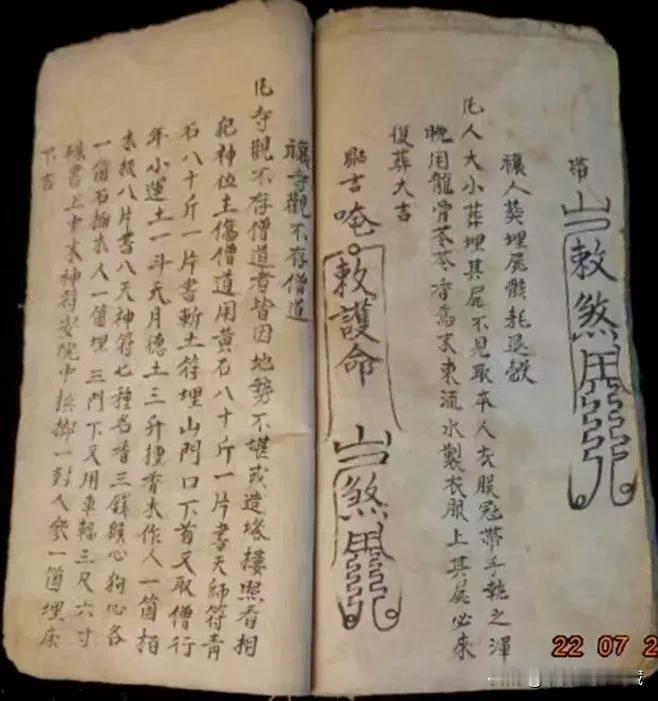 帶
山敕煞用
禳人葬埋屍骸耗退欵
凡人大小葬埋其屍不見取本人衣服冠帶手執之渾
晚用龍骨苓苓香為末東流水製衣服上其屍必來
復葬大吉
吉唵敕護命
山煞用
禳寺觀不存僧道
凡寺觀不存僧道者皆因地勢不堪或造塔樓照看相
犯神位土傷僧道用黃石八十斤一片書天師符青
石八十斤一片書斬土符埋山門口下首又取僧行
年小運土一斗天月德土三升揰香末作人一箇栢
木板八片書八天神符七種名香三錢猿心狗心各
一箇石榴木人一箇埋三門下又用車輻三尺六寸
硃書上安院中一對人參一箇埋床
下吉
22 07 2